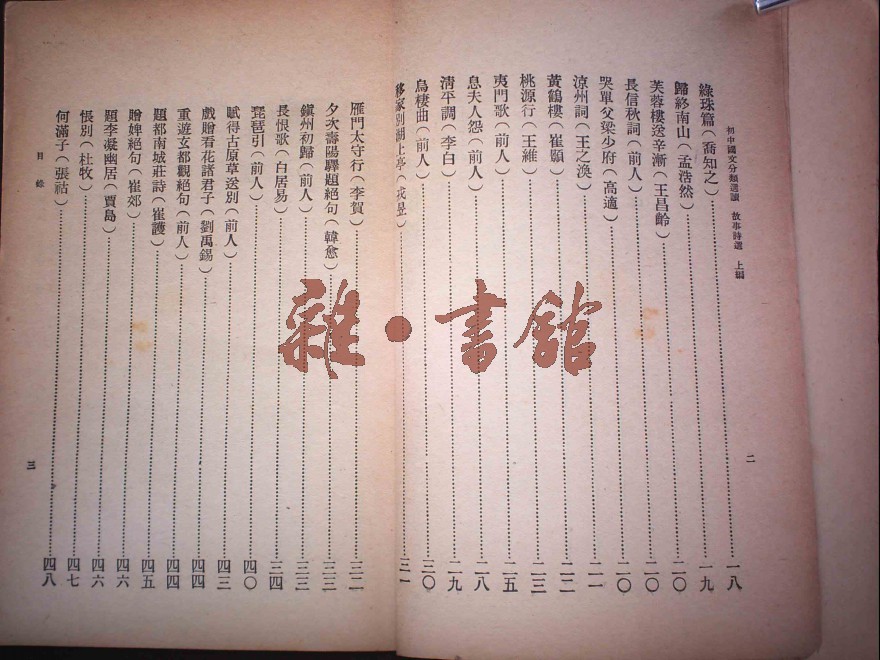 初中國文分類選讀 故事詩選 上編
綠珠篇(喬知之)……一八
歸終南山(孟浩然)……一九
芙蓉樓送辛漸(王昌齡)……二〇
長信秋詞(前人)……二〇
哭單父梁少府(高適)……二〇
涼州詞(王之渙)……二一
黃鶴樓(崔顥)……二二
桃源行(王維)……二三
夷門歌(前人)……二五
息夫人怨(前人)……二八
清平調(李白)……二九
烏棲曲(前人)……三〇
移家別湖上亭(戎昱)……三一
二
雁門太守行(李賀)……三二
夕次壽陽驛題絕句(韓愈)……三三
鎮州初歸(前人)……三三
長恨歌(白居易)……三四
琵琶引(前人)……四〇
賦得古原草送別(前人)……四三
戲贈看花諸君子(劉禹錫)……四四
重遊玄都觀絕句(前人)……四四
題都南城莊詩(崔護)……四五
贈婢絕句(崔郊)……四六
題李凝幽居(賈島)……四六
悵別(杜牧)……四七
何滿子(張祜)……四八
目錄
三
雜·書館